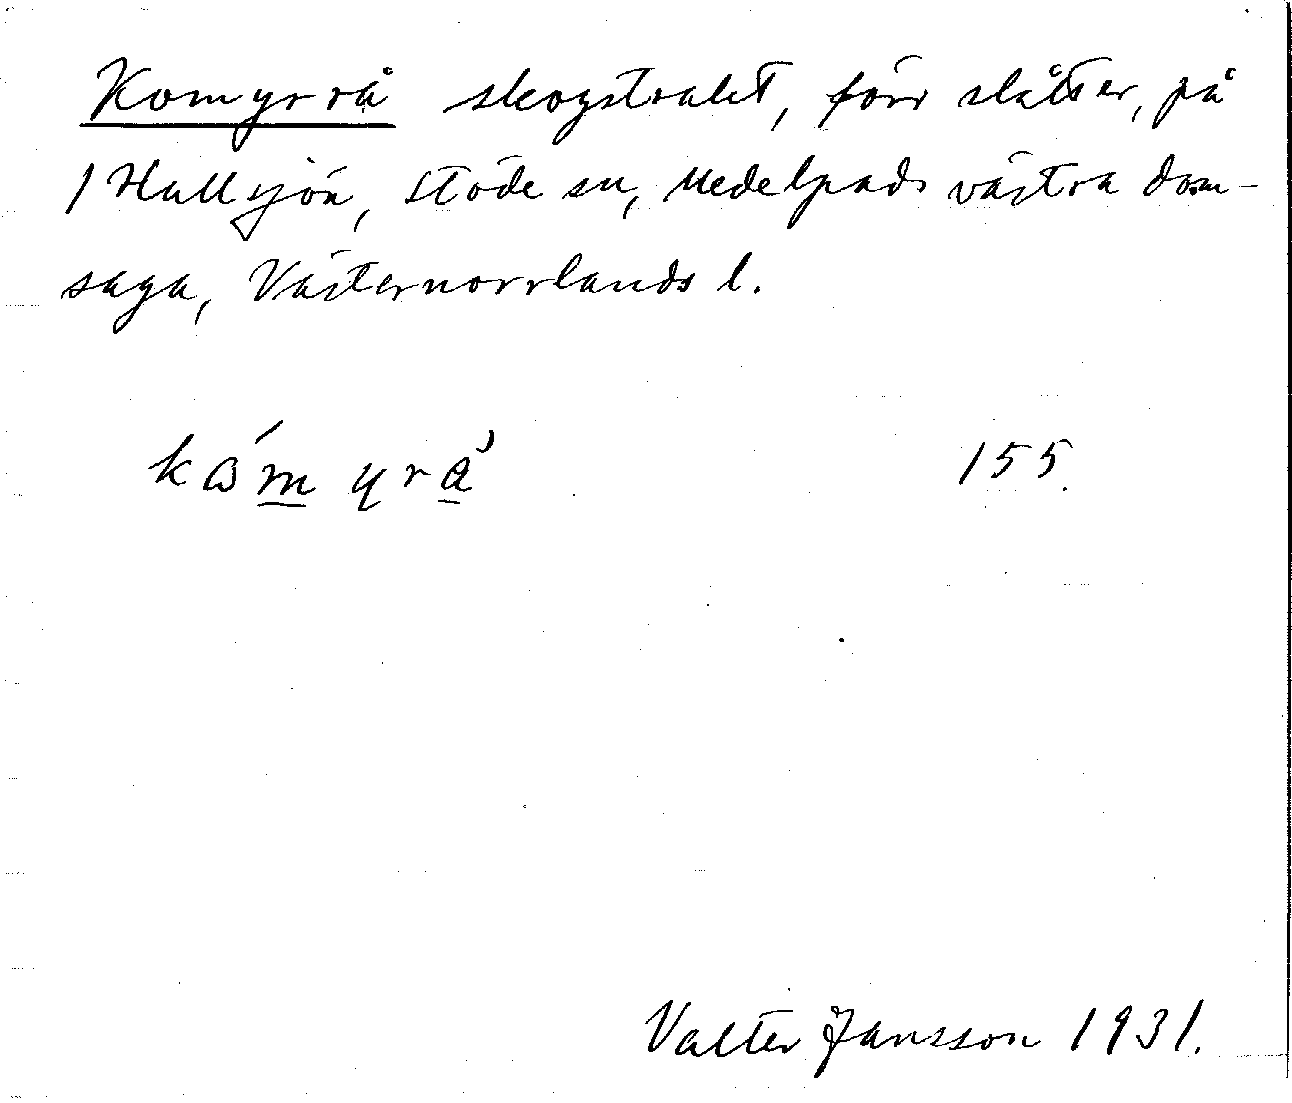 Komyrrå skogstrakt, förr slåtter, på
1 Hullsjön, Stöde sn, Medelpads västra dom-
saga, Västernorrlands l.
155.
Valter Jansson 1931.